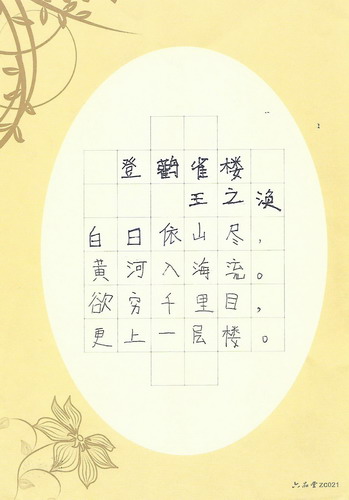 登鸛雀楼
王之涣
白日依山尽，
黄河入海流。
欲穷千里目，
更上一层楼。
六品堂 ZC021